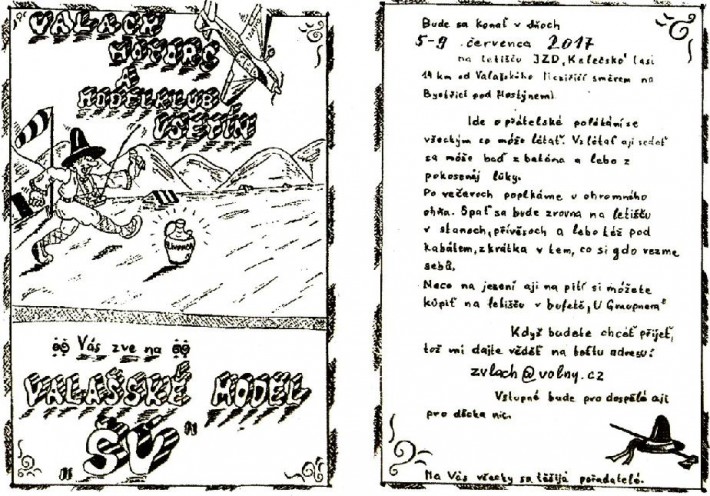 VALACH
MOTORC
A
MODELKLUB
VSETÍN
Vás zve na
VALAŠSKÉ MODEL
"ŠŮ"
Bude sa konať v dňoch
5-9 . července 2017
na letišťu JZD „Kelečsko" (asi
14 km od Valašského Meziříčí směrem na
Bystřici pod Hostýnem)
Ide o přátelské polétání se
všeckým co može létat. Vzlétať aji sedať
sa može baď z betóna a lebo z
pokosenéj lúky.
Po večeroch popékáme u ohromného
ohňa. Spať sa bude zrovna na letišťu
v stanoch, přívěsoch a lebo též pod
kabátem, zkrátka v tem, co si gdo vezme
sebú.
Neco na jezení aji na pití si možete
kúpiť na letišťu v bufetě
Když budete chcéť přijeť,
tož mi dajte věděť na tuto adresu:
zvlach@volny.cz
Vstupné bude pro dospělé aji
pro děcka nic.
Na Vás všecky sa těšijá pořadatelé.